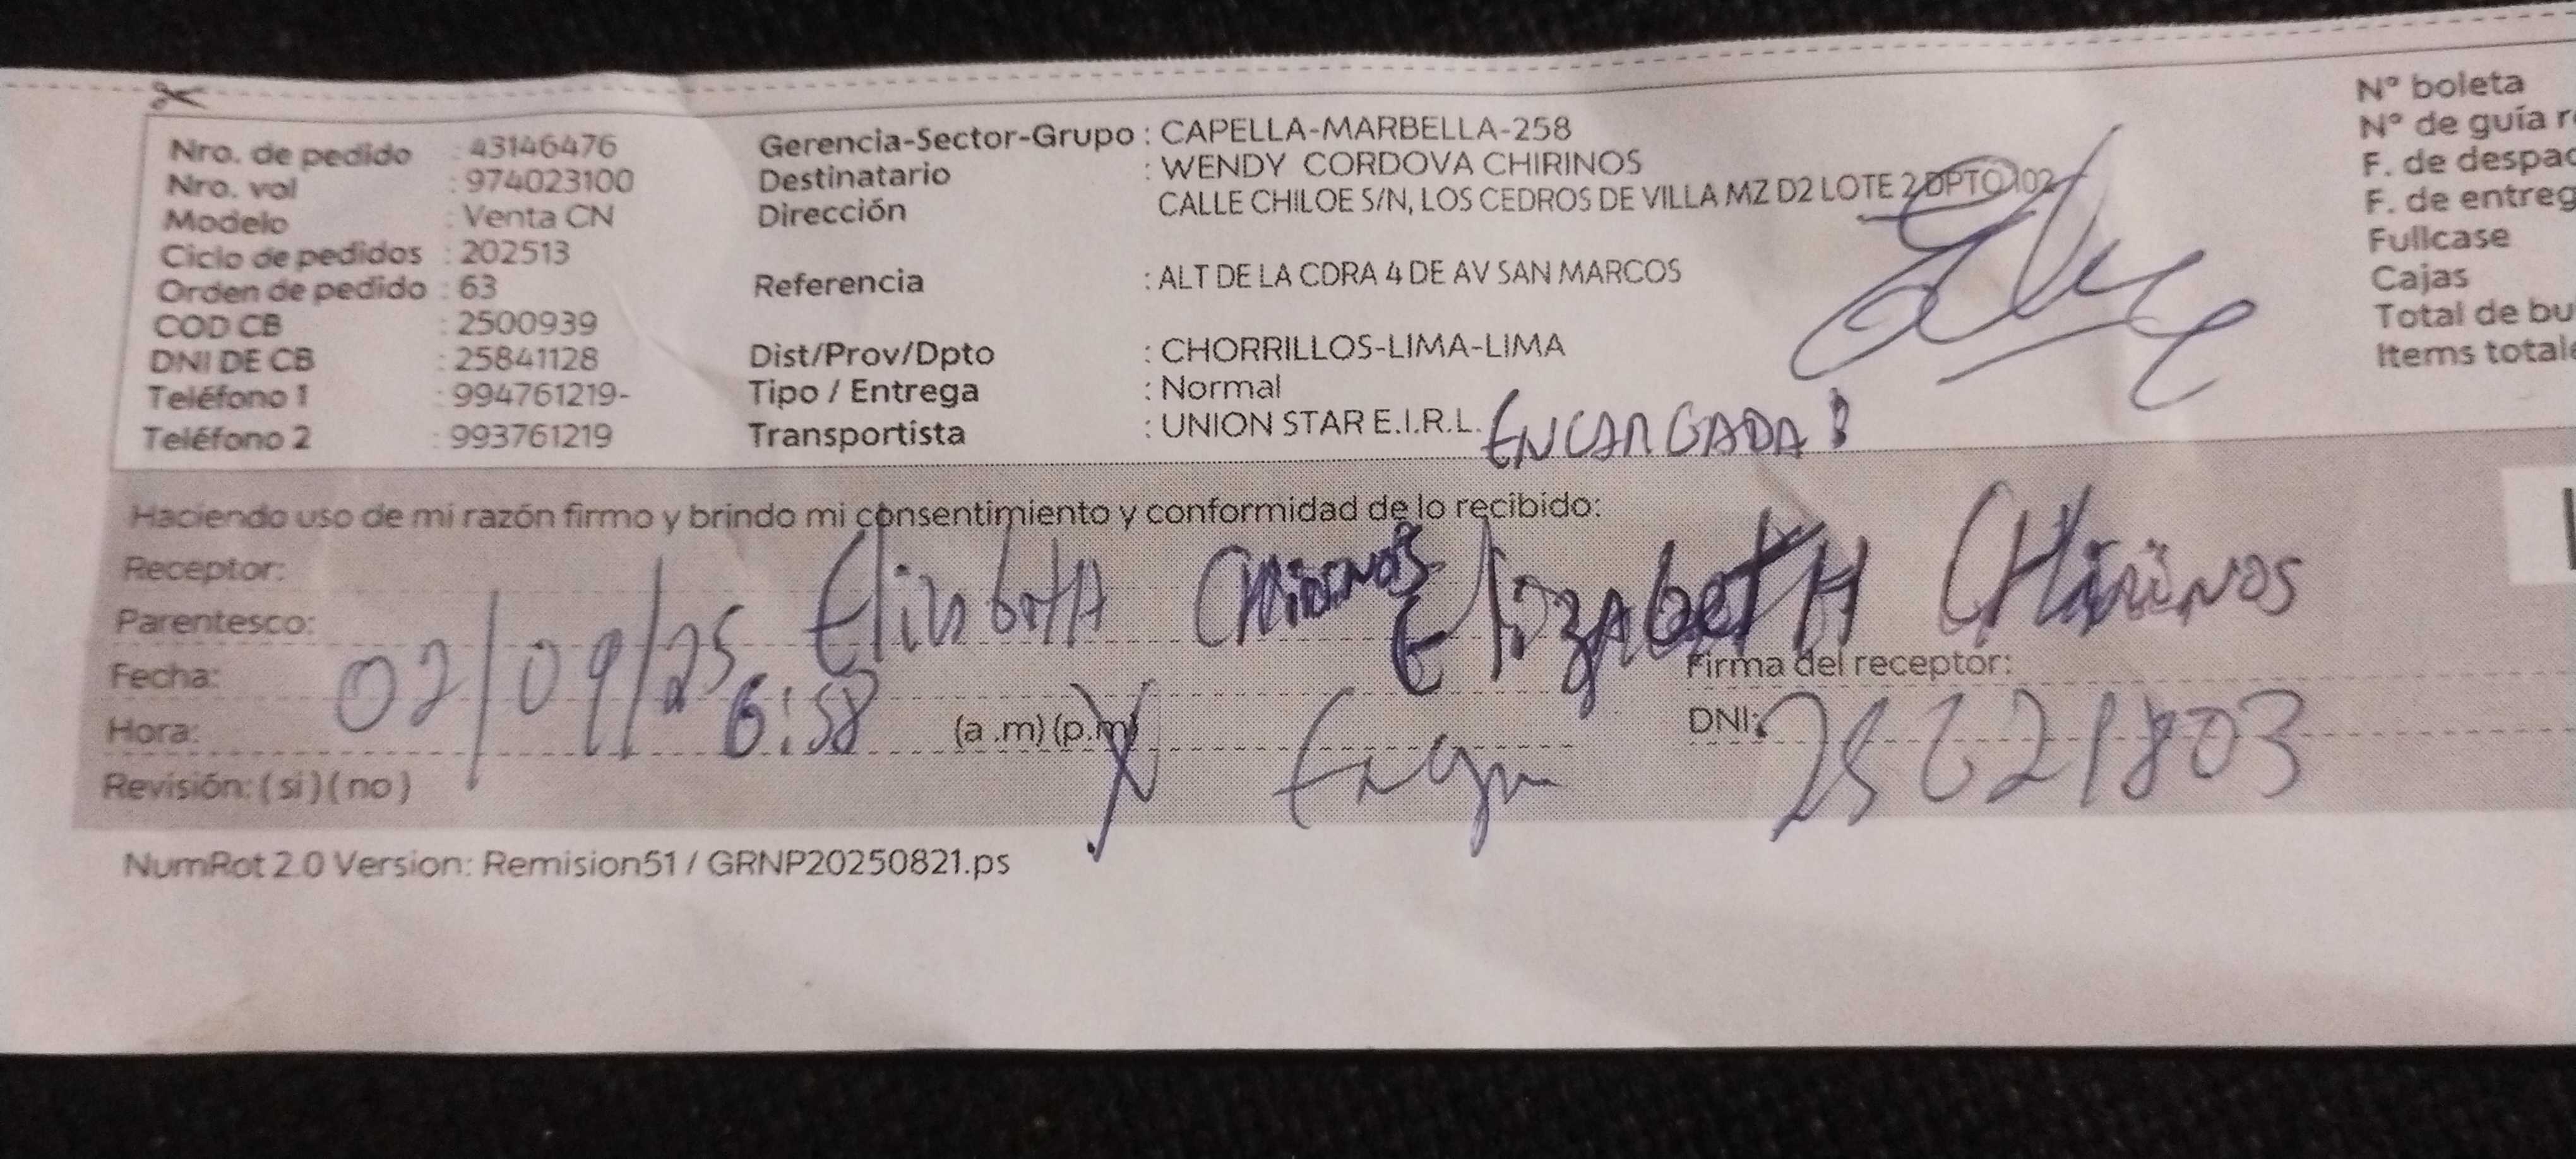 Nro. de pedido : 43146476
Nro. vol : 974023100
Modelo : Venta CN
Ciclo de pedidos : 202513
Orden de pedido : 63
COD CB : 2500939
DNI DE CB : 25841128
Teléfono 1 : 994761219-
Teléfono 2 : 993761219
Gerencia-Sector-Grupo : CAPELLA-MARBELLA-258
Destinatario : WENDY CORDOVA CHIRINOS
Dirección CALLE CHILOE S/N, LOS CEDROS DE VILLA MZ D2 LOTE 2 DPTO 102
Referencia : ALT DE LA CDRA 4 DE AV SAN MARCOS
Dist/Prov/Dpto : CHORRILLOS-LIMA-LIMA
Tipo / Entrega : Normal
Transportista : UNION STAR E.I.R.L.
ENCARGADA
N° boleta
N° de guía
F. de
F. de
Fullcase
Cajas
Total de
Items
Haciendo uso de mi razón firmo y brindo mi consentimiento y conformidad de lo recibido:
Receptor:
CHIRINOS ElizabetH CHIRINOS
Parentesco:
Fecha: 02/09/25
Firma del receptor:
Hora: 6:58 (a .m) (p.m)
DNI:
Revisión: ( si ) ( no )
NumRot 2.0 Version: Remision51 / GRNP20250821.ps